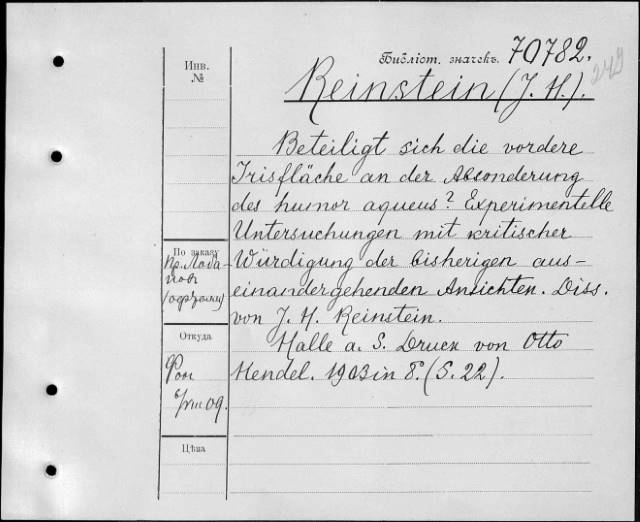 Библіот. значекъ. 70782.
242
Инв.
№
Reinstein (J. H.).
Beteiligt sich die vordere
Irisfläche an der Absonderung
des humor aqueus? Experimentelle
Untersuchungen mit kritischer
Würdigung der bisherigen aus-
einandergehenden Ansichten. Diss.
von J. H. Reinstein.
Halle a. S. Druck von Otto
Hendel. 1903 in 8°. (S. 22).
По заказу
Откуда
Фок
6/VIII 09.
Цѣна